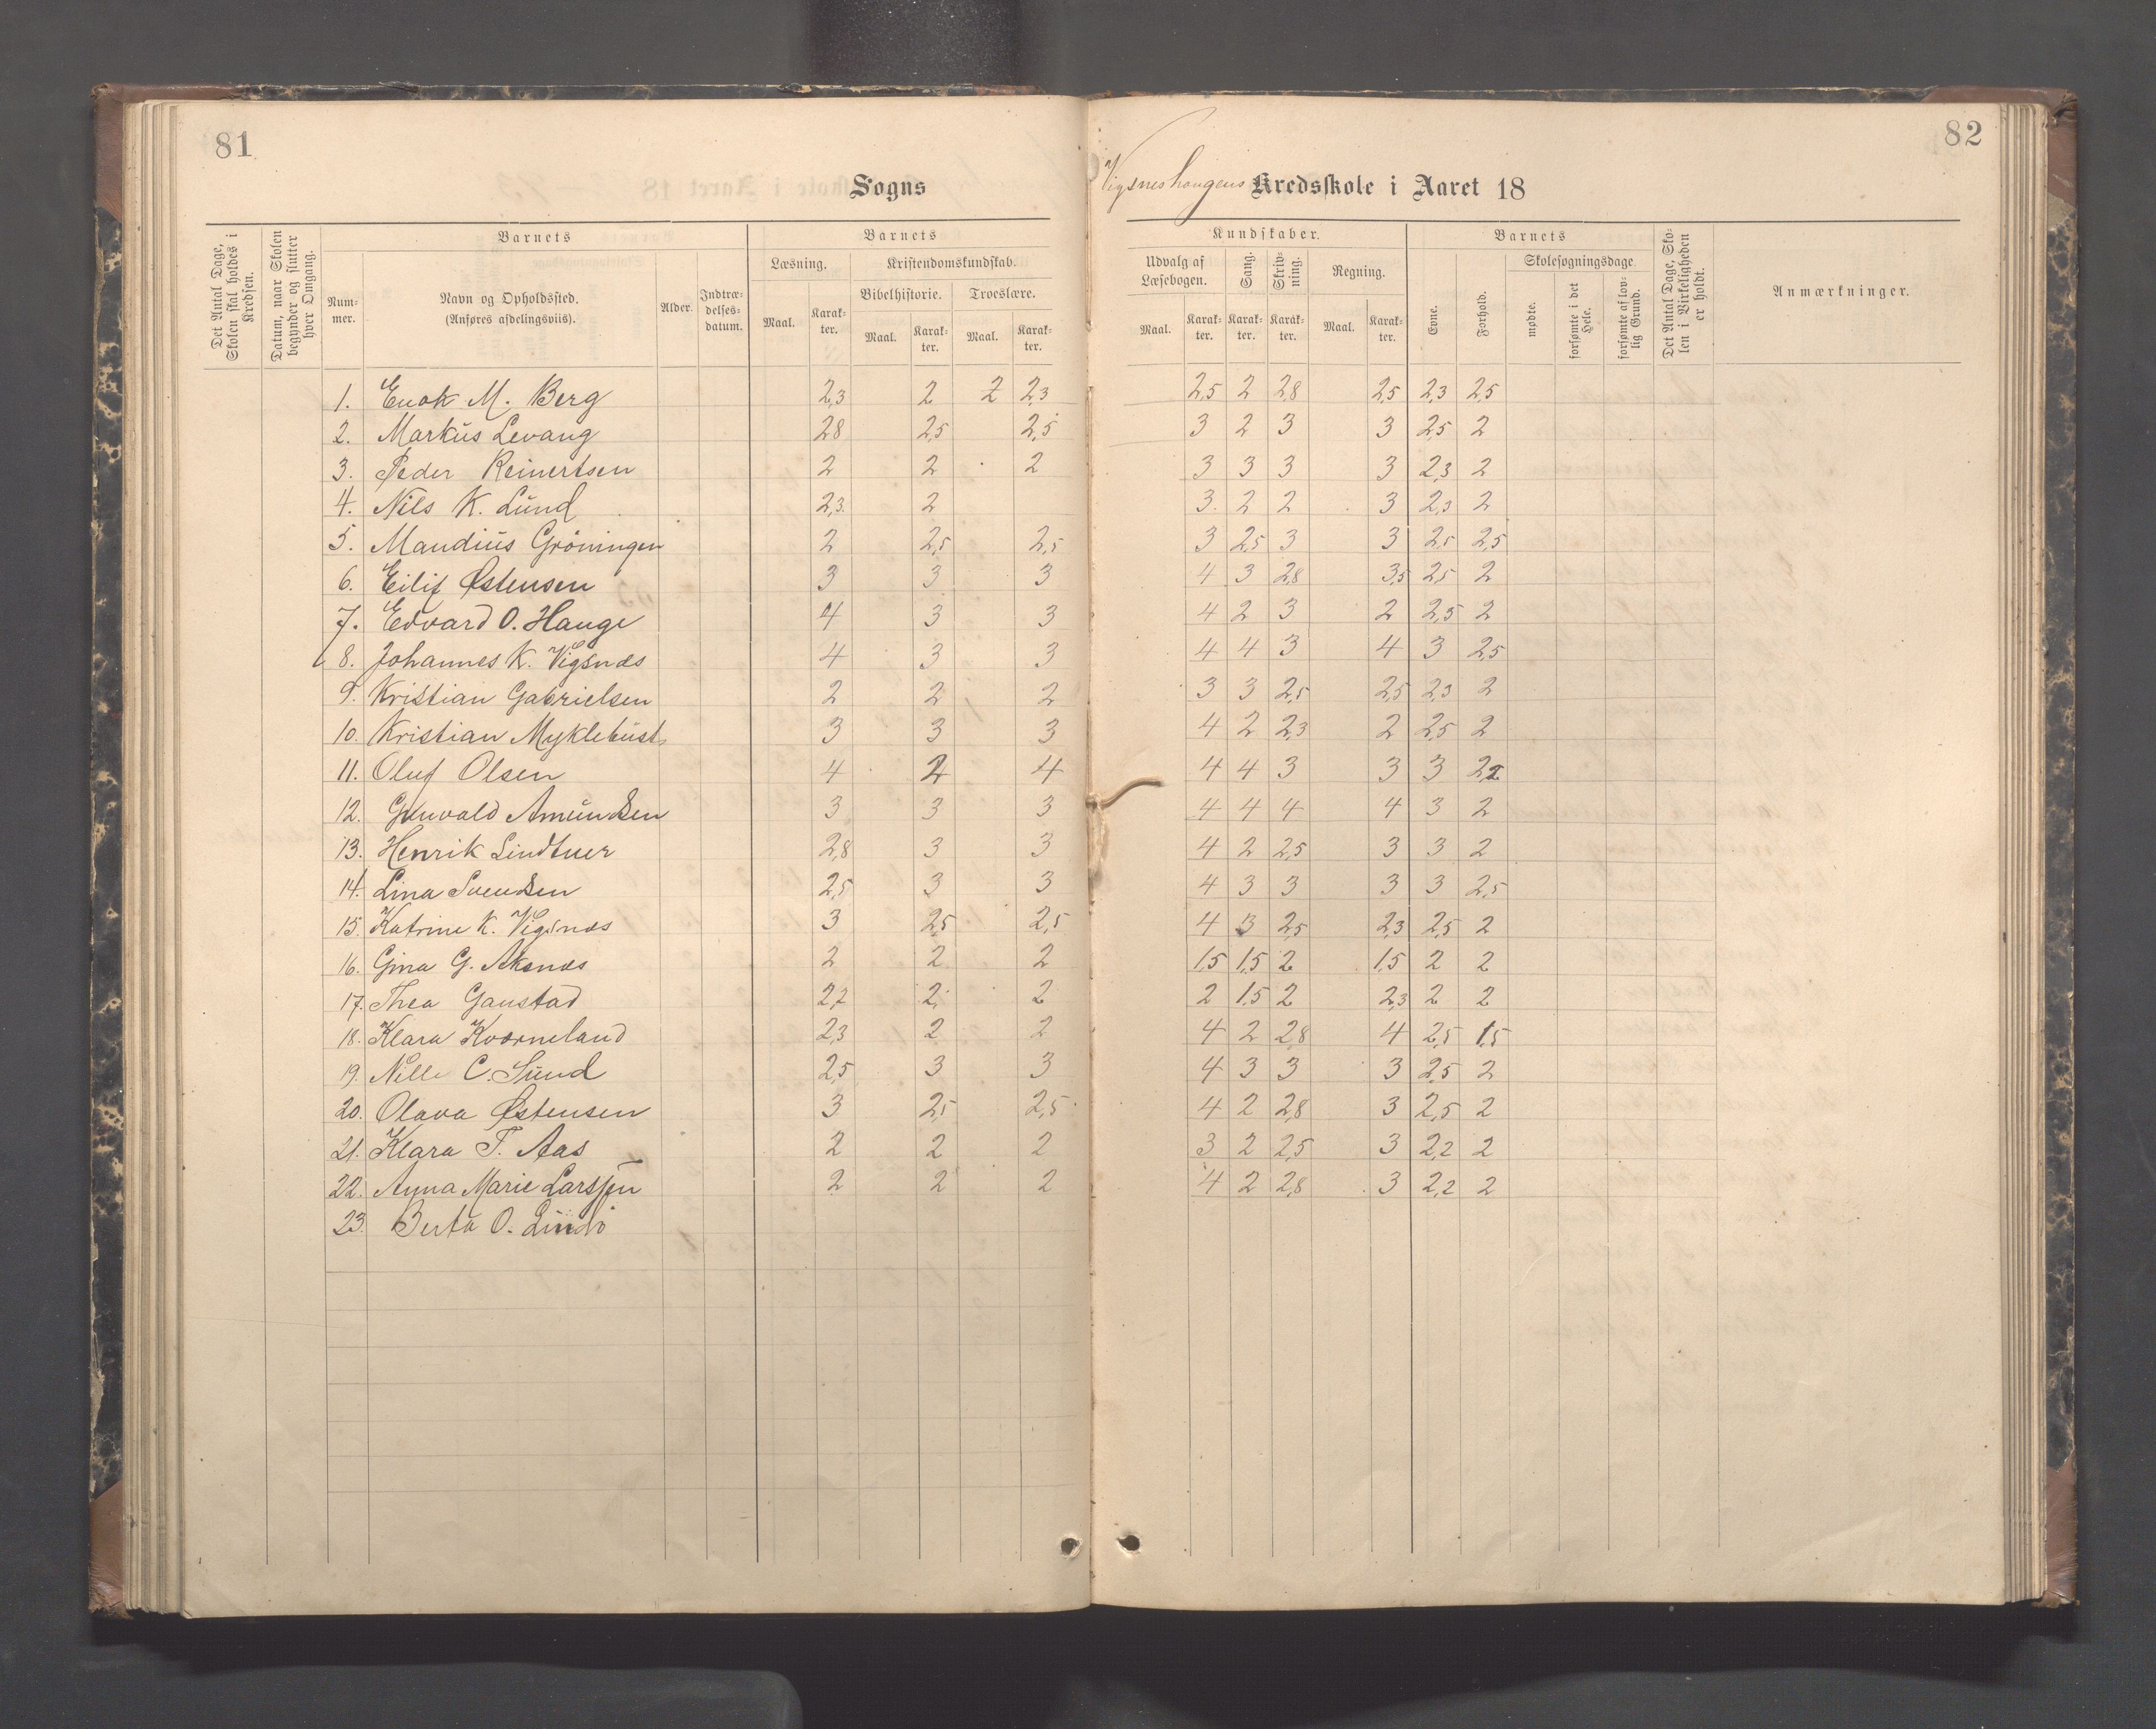 81
82
Sogns
Vigsneshaugens Kredsskole i Aaret 18
Det Antal Dage, Skolen skal holdes i Kredsen.
Datum, naar Skolen begynder og slutter hver Omgang.
Barnets
Nummer.
Navn og Opholdssted. (Anføres afdelingsviis).
Alder.
Indtrædelsesdatum.
Barnets
Læsning.
Maal.
Karakter.
Kristendomskundskab.
Bibelhistorie.
Maal.
Karakter.
Troeslære.
Maal.
Karakter.
Kundskaber.
Udvalg af Læsebogen.
Maal.
Karakter.
Sang.
Karakter.
Skrivning.
Karakter.
Regning.
Maal.
Karakter.
Barnets
Evne.
Forhold.
Skolesøgningsdage.
mødte.
forsømte i det Hele.
forsømte af lovlig Grund.
Det Antal Dage, Skolen i Virkeligheden er holdt.
Anmærkninger.
1. Enok M. Berg 2,3 2 2 2,3 2,5 2 2,8 2,5 2,3 2,5
2. Markus Levang 2,8 2,5 2,5 3 2 3 3 2,5 2
3. Peder Reinertsen 2 2 2 3 3 3 3 2,3 2
4. Nils K. Lund 2,3 2 3 2 2 3 2,3 2
5. Mandius Gröningen 2 2,5 2,5 3 2,5 3 3 2,5 2,5
6. Eilif Østensen 3 3 3 4 3 2,8 3,5 2,5 2
7. Edvard O. Hauge 4 3 3 4 2 3 2 2,5 2
8. Johannes K. Vigsnæs 4 3 3 4 4 3 4 3 2,5
9. Kristian Gabrielsen 2 2 2 3 3 2,5 2,5 2,3 2
10. Kristian Myklebust 3 3 3 4 2 2,3 2 2,5 2
11. Oluf Olsen 4 4 4 4 3 3 3 2,2
12. Gunvald Amundsen 3 3 3 4 4 4 4 3 2
13. Henrik Lindtner 2,8 3 3 4 2 2,5 3 3 2
14. Lina Svendsen 2,5 3 3 4 3 3 3 3 2,5
15. Katrine K. Vigsnæs 3 2,5 2,5 4 3 2,5 2,3 2,5 2
16. Gina G. Aksnæs 2 2 2 1,5 1,5 2 1,5 2 2
17. Thea Gaustad 2,2 2 2 2 1,5 2 2,3 2 2
18. Klara Kværneland 2,3 2 2 4 2 2,8 4 2,5 1,5
19. Nille C. Sund 2,5 3 3 4 3 3 3 2,5 2
20. Olava Østensen 3 2,5 2,5 4 2 2,8 3 2,5 2
21. Klara T. Aas 2 2 2 3 2 2,5 3 2,2 2
22. Anna Marie Larssen 2 2 2 4 2 2,8 3 2,2 2
23. Berta O. Lindö